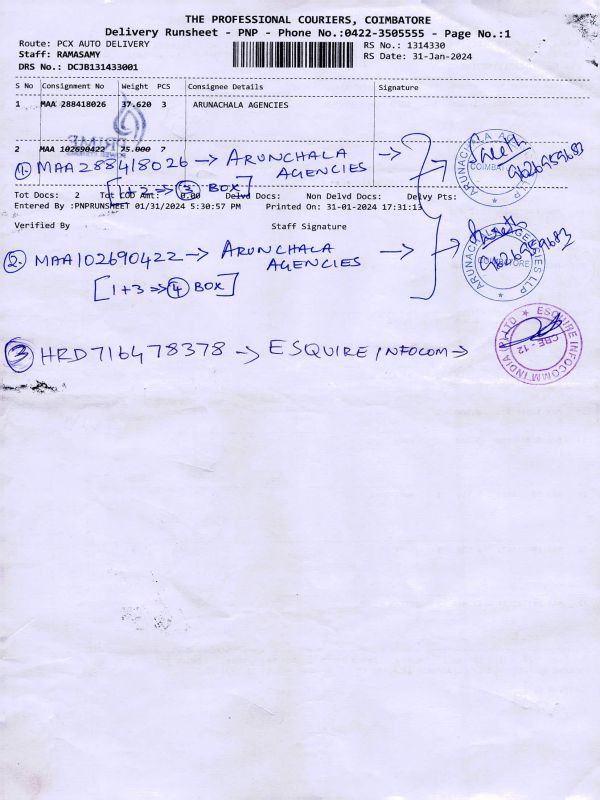 THE PROFESSIONAL COURIERS, COIMBATORE
Delivery Runsheet - PNP - Phone No.:0422-3505555 - Page No.:1
Route: PCX AUTO DELIVERY RS No.: 1314330
Staff: RAMASAMY RS Date: 31-Jan-2024
DRS No.: DCJB131433001
S No Consignment No Weight PCS Consignee Details Signature
1 MAA 288418026 37.620 3 ARUNACHALA AGENCIES
2 MAA 102690422 75.000 7
1. MAA288418026 → ARUNCHALA AGENCIES →
[1+2 ⇒ 3 BOX]
ARUNACHALA AGENCIES LLP
COIMBATORE
9626959683
Tot Docs: 2 Tot COD Amt: 0.00 Delvd Docs: Non Delvd Docs: Delvy Pts:
Entered By :PNPRUNSHEET 01/31/2024 5:30:57 PM Printed On: 31-01-2024 17:31:13
Verified By Staff Signature
2. MAA102690422 → ARUNCHALA AGENCIES →
[1+3 ⇒ 4 BOX]
ARUNACHALA AGENCIES LLP
COIMBATORE
9626959683
3 HRD716478378 → ESQUIRE INFOCOM →
ESQUIRE INFOCOM INDIA (P) LTD
CBE - 12